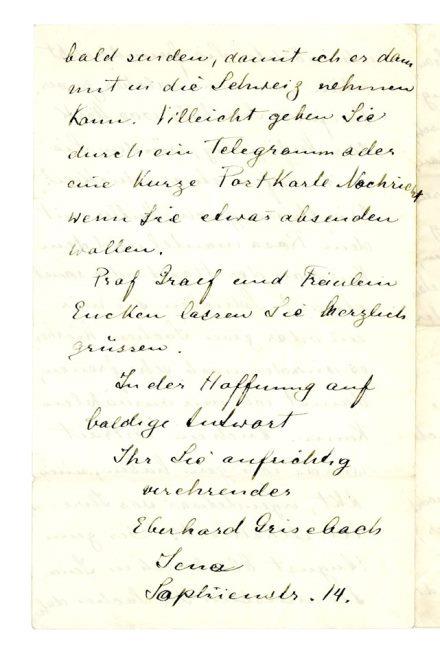 bald senden, damit ich es dann
mit in die Schweiz nehmen
Kann. Villeicht geben Sie
durch ein Telegramm oder
eine Kurze PostKarte Nachricht
wenn Sie etwas absenden
wollen.
Prof Graef und Fräulein
Eucken lassen Sie herzlich
grüssen.
In der Hoffnung auf
baldige Antwort
Ihr Sie aufrichtig
verehrender
Eberhard Grisebach
Jena
Sophienstr. 14.